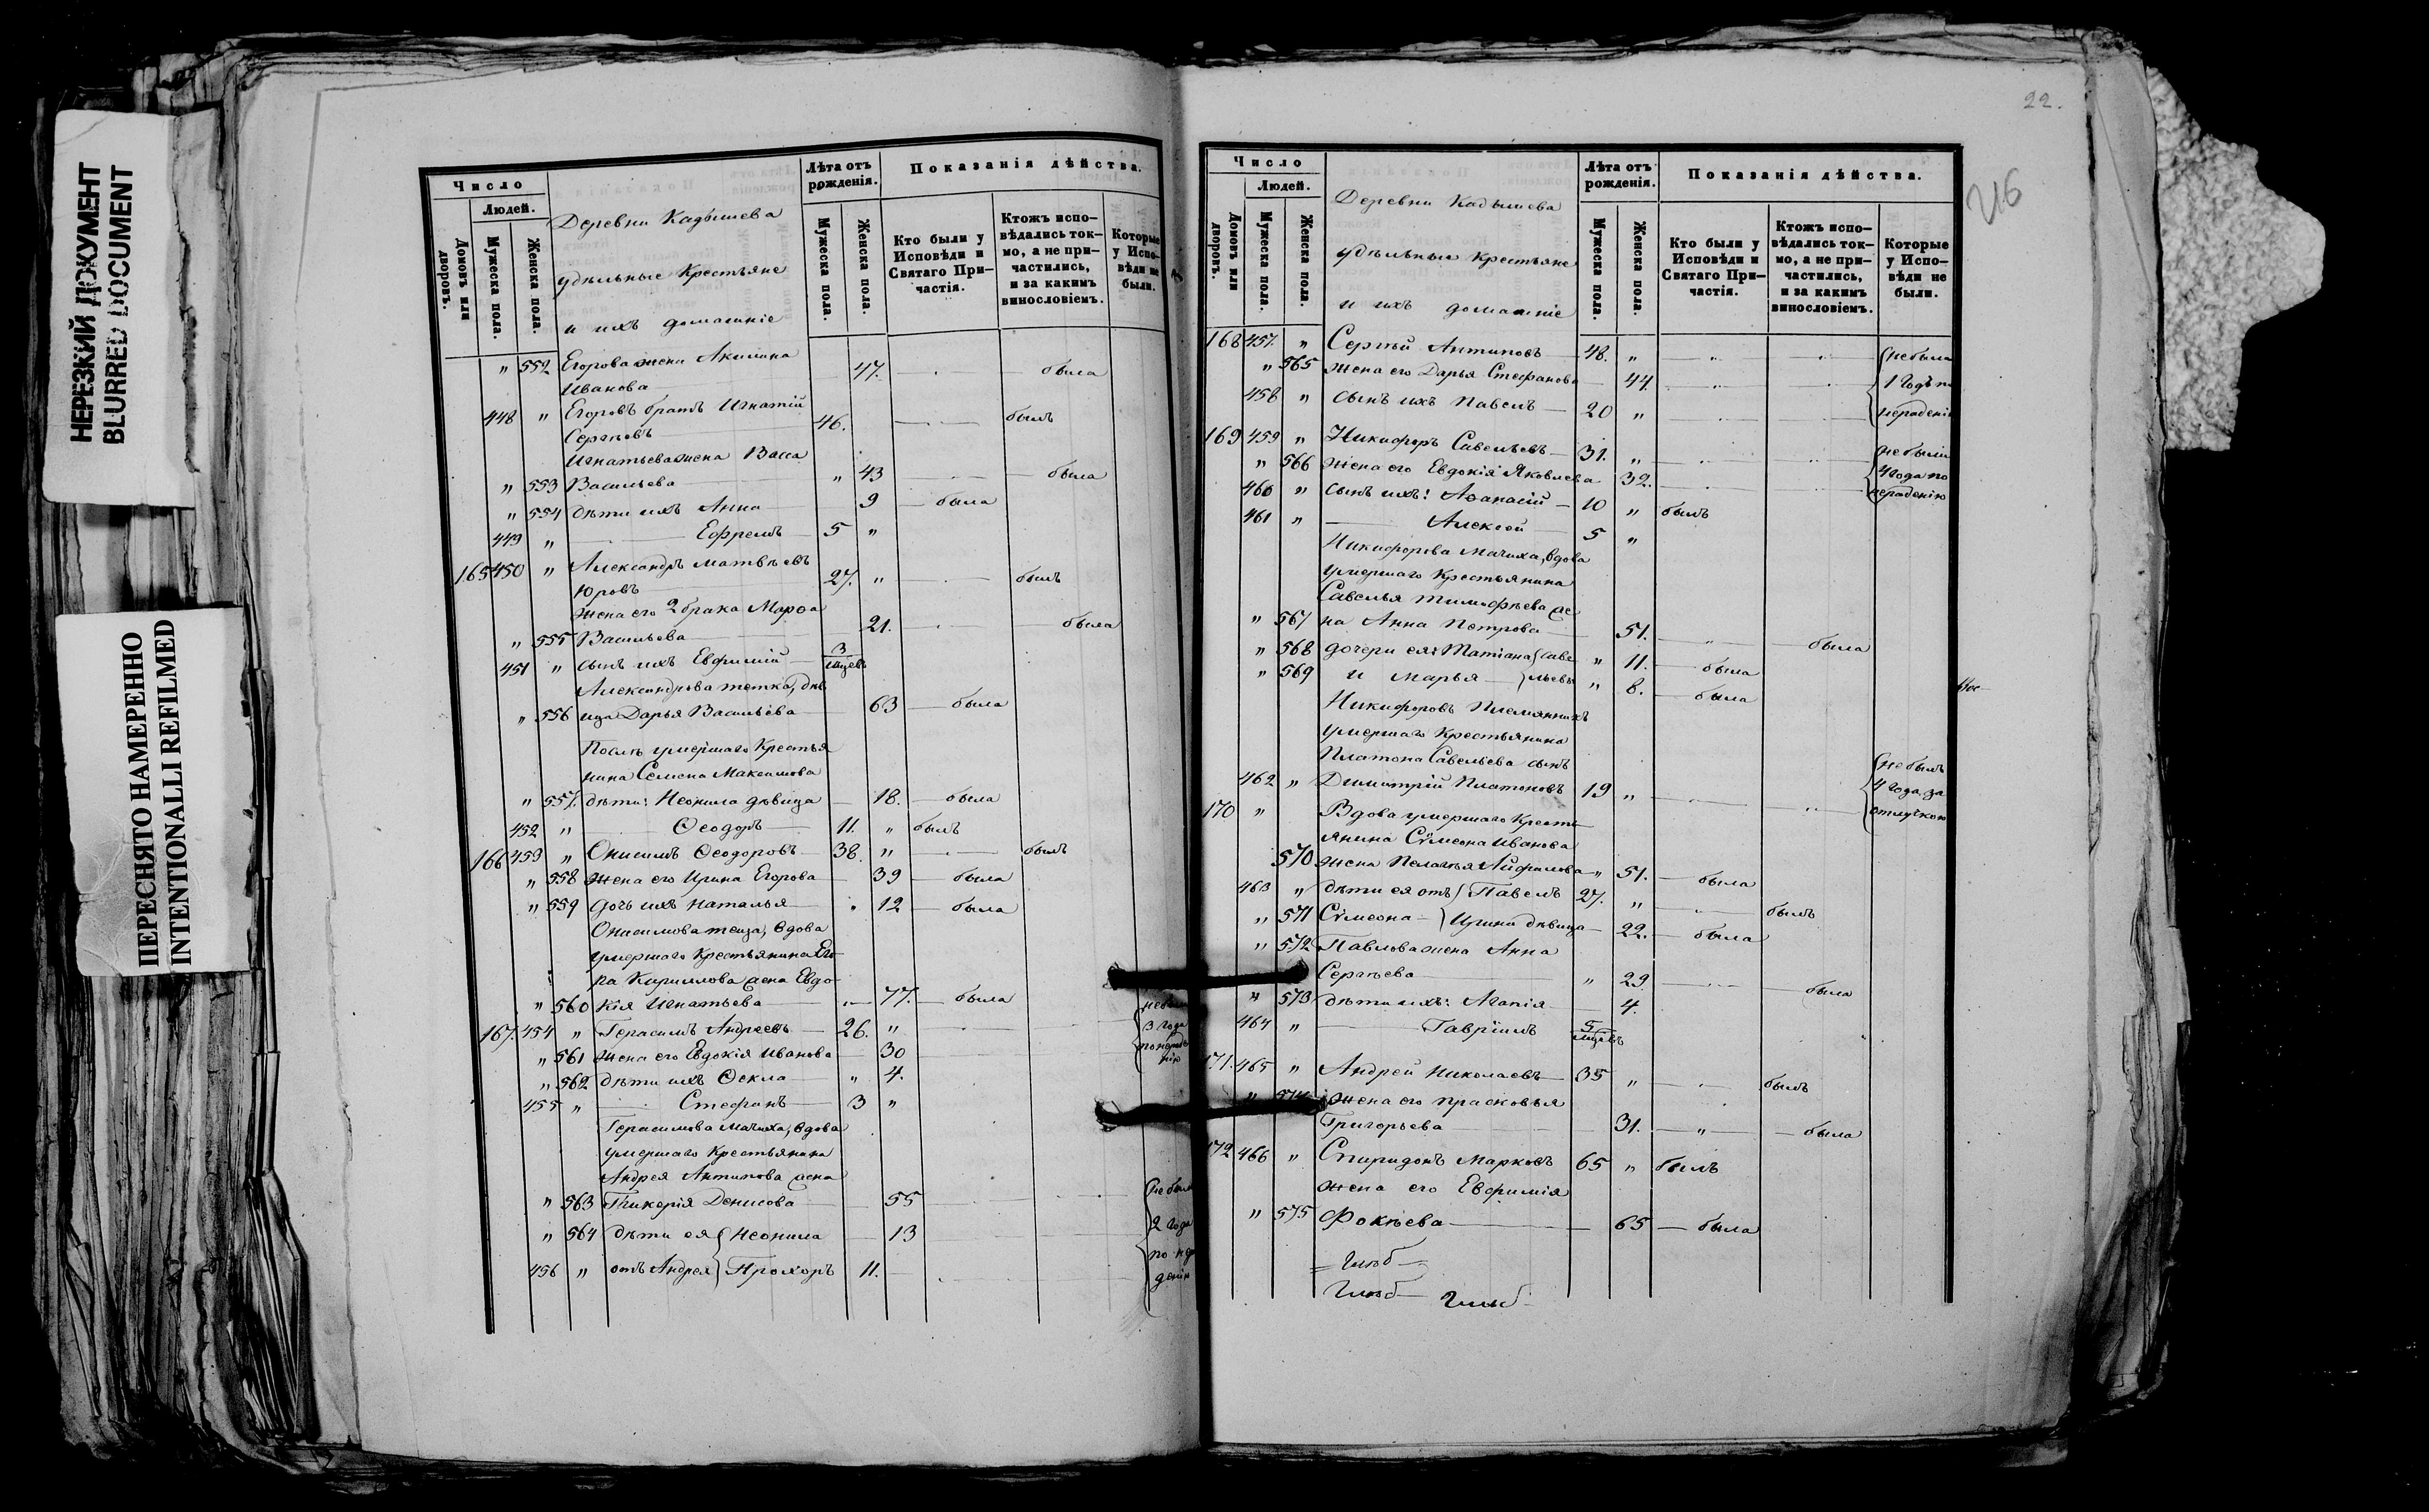 НЕРЕЗКИЙ ДОКУМЕНТ
BLURRED DOCUMENT
ПЕРЕСНЯТО НАМЕРЕННО
INTENTIONALLI REFILMED
Число
Людей.
Домовъ или дворовъ.
Мужеска пола.
Женска пола.
Деревни Кадышева
удѣльные Крестьяне
и ихъ домашніе
Лѣта отъ рожденія.
Мужеска пола.
Женска пола.
Показанія дѣйства.
Кто были у Исповѣди и Святаго При-частія.
Ктожъ испо-вѣдались ток-мо, а не при-частились, и за какимъ винословіемъ.
Которые у Испо-вѣди не были.
" 552 Егорова жена Акилина
Иванова 47. была
448 " Егоровъ братъ Игнатій
Сергѣевъ 46. былъ
Игнатьева жена Васса
" 553 Васильева " 43 была
" 554 дѣти ихъ Анна 9 была
449 " Ефремъ 5 "
165 450 " Александръ Матвѣевъ
Юровъ 27. " былъ
Жена его 2 брака Марѳа
" 555 Васильева 21. была
451 " сынъ ихъ Евфимій 3 мцев
Александрова тетка, дѣв
" 556 ица Дарья Васильева 63 была
Послѣ умершаго Крестья
нина Семена Максимова
" 557. дѣти: Неонила дѣвица 18. была
452 " Ѳеодоръ 11. " былъ
166 453 " Онисимъ Ѳеодоровъ 38. " былъ
" 558 Жена его Ирина Егорова 39 была
" 559 дочь ихъ Наталья " 12 была
Онисимова теща, вдова
умершаго Крестьянина Его
ра Кирилова жена Евдо-
" 560 кія Игнатьева 77. была
167. 454 " Герасимъ Андреевъ 26. " небыли
" 561 Жена его Евдокія Иванова 30 3 года
" 562 дѣти ихъ Ѳекла " 4.
455 " Стефанъ 3 "
Герасимова Мачиха, вдова
умершаго Крестьянина
Андрея Антипова жена
" 563 Гликерія Денисова 55 небыли
" 564 дѣти ея Неонила 13 2 года
456 " отъ Андрея Прохоръ 11.
22.
216
Число
Людей.
Домовъ или дворовъ.
Мужеска пола.
Женска пола.
Деревни Кадышева
удѣльные Крестьяне
и ихъ домашніе
Лѣта отъ рожденія.
Мужеска пола.
Женска пола.
Показанія дѣйства.
Кто были у Исповѣди и Святаго При-частія.
Ктожъ испо-вѣдались ток-мо, а не при-частились, и за какимъ винословіемъ.
Которые у Испо-вѣди не были.
168 457. " Сергѣй Антиповъ 48. " небыли
" 565 Жена его Дарья Стефанова 44 1 годъ по
458 " сынъ ихъ Павелъ 20 " нераденію
169 459 " Никифоръ Савельевъ 31. " небыли
" 566 Жена его Евдокія Яковлева 32. 4 года по
нераденію
460 " сынъ ихъ: Аѳанасій 10 " былъ
461 " Алексѣй 5 "
Никифорова Мачиха, вдова
умершаго Крестьянина
Савелья Тимофѣева же
" 567 на Анна Петрова 51. была
" 568 дочери ея: Татіана Саве " 11. была
" 569 и Марья льевы " 8. была
Никифоровъ Племянникъ
умершаго Крестьянина
Платона Савельева сынъ
462 " Димитрій Платоновъ 19 " небылъ
4 года за
отлучкою
170 " Вдова умершаго Крестья
янина Сѵмеона Иванова
570 жена Пелагья " 51. была
463 " дѣти ея отъ Павелъ 27. " былъ
" 571 Сѵмеона Ирина дѣвица 22. была
" 572 Павлова жена Анна
Сергѣева " 29 была
" 573 дѣти ихъ: Агапія 4.
464 " Гавріилъ 5 мцевъ
171. 465 " Андрей Николаевъ 35 " былъ
" 574 Жена его Прасковья
Григорьева 31. " была
172 466 " Спиридонъ Марковъ 65 " былъ
Жена его Евфимія
" 575 Фокѣева 65 была